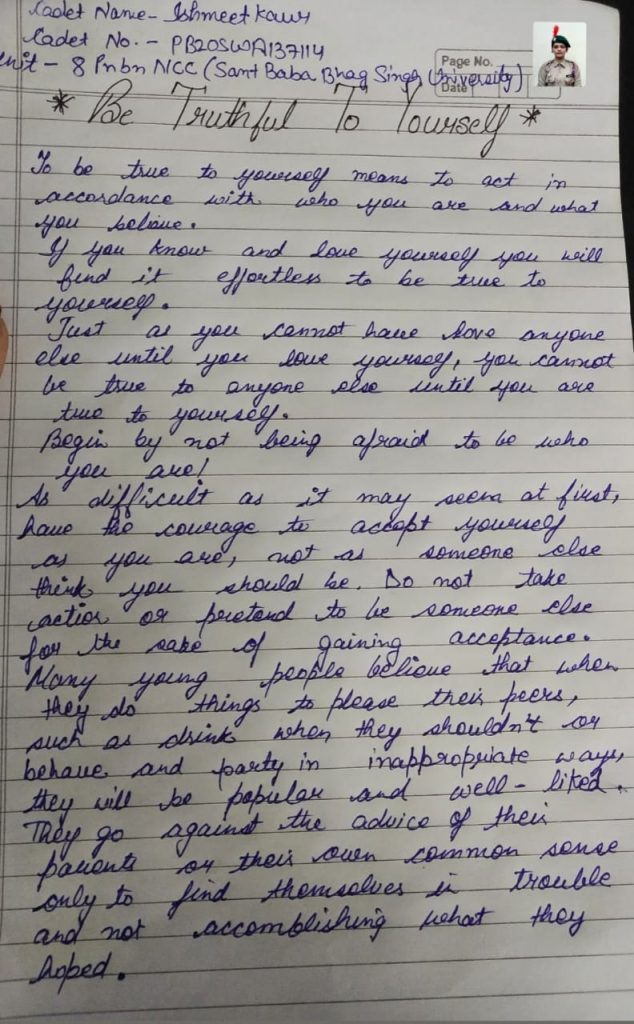 Cadet Name- Ishmeet Kaur
Cadet No. - PB20SWA137114
Unit - 8 Pnbn NCC (Sant Baba Bhag Singh University)
Page No.
Date
* Be Truthful To Yourself *
To be true to yourself means to act in
accordance with who you are and what
you believe.
If you know and love yourself you will
find it effortless to be true to
yourself.
Just as you cannot have love anyone
else until you love yourself, you cannot
be true to anyone else until you are
true to yourself.
Begin by not being afraid to be who
you are!
As difficult as it may seem at first,
have the courage to accept yourself
as you are, not as someone else
think you should be. Do not take
action or pretend to be someone else
for the sake of gaining acceptance.
Many young people believe that when
they do things to please their peers,
such as drink when they shouldn't or
behave and party in inappropriate ways,
they will be popular and well-liked.
They go against the advice of their
parents or their own common sense
only to find themselves in trouble
and not accomplishing what they
hoped.